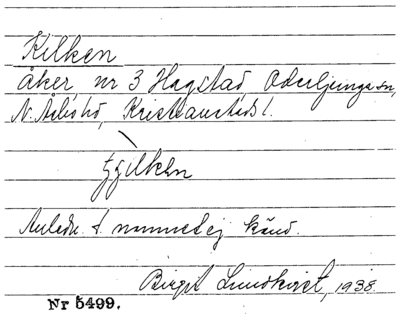 Kilken
åker, nr 3 Hagstad, Oderljunga sn,
N. Åsbo hd, Kristianstads l.
tjilken
Anledn. t. namnet ej känd.
Birgit Lundkvist, 1938.
Nr 5499.